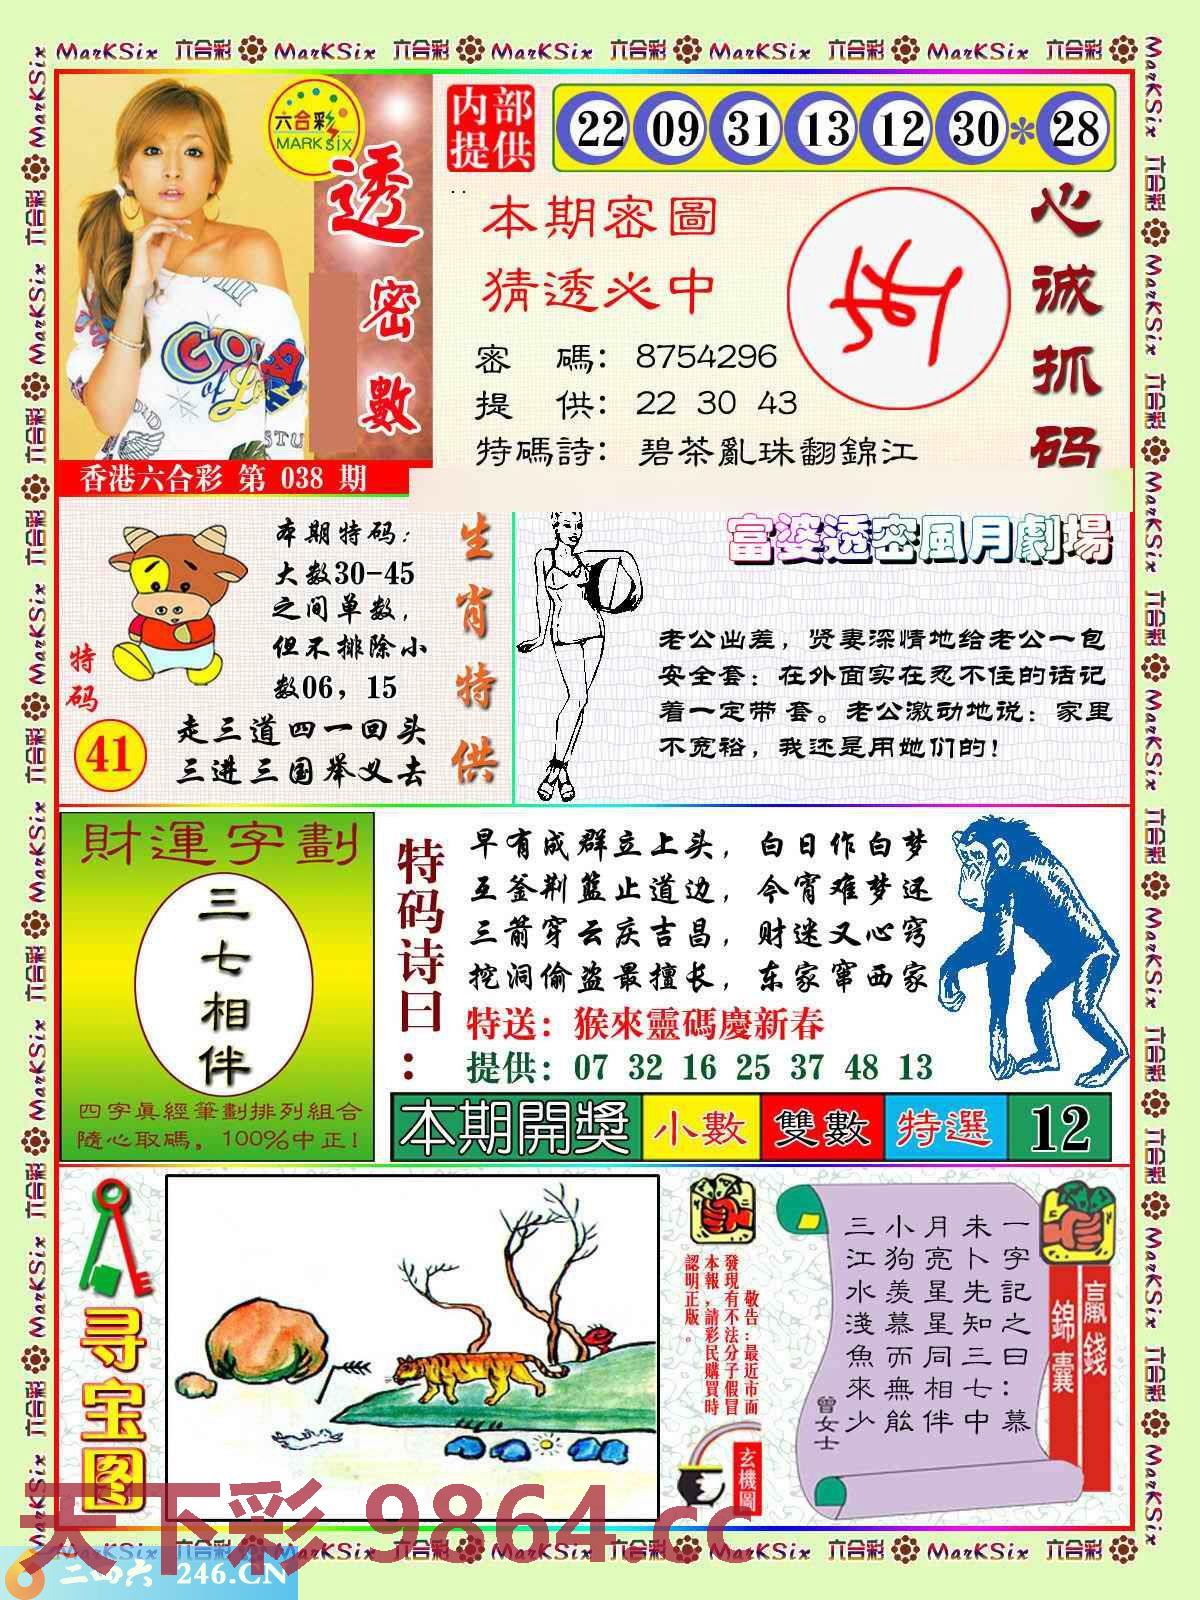 MarKSix 六合彩 MarKSix 六合彩 MarKSix 六合彩 MarKSix 六合彩 MarKSix 六合彩
六合彩
MARK SIX
透密數
香港六合彩 第 038 期
内部提供
22 09 31 13 12 30 * 28
本期密圖
猜透必中
密 碼: 8754296
提 供: 22 30 43
特碼詩: 碧茶亂珠翻錦江
心诚抓码
本期特码:
大数30-45
之间单数,
但不排除小
数06, 15
特码
41
走三道四一回头
三进三国举义去
生肖特供
富婆透密風月劇場
老公出差, 贤妻深情地给老公一包
安全套: 在外面实在忍不住的话记
着一定带 套。老公激动地说: 家里
不宽裕, 我还是用她们的!
財運字劃
三七相伴
四字眞經筆劃排列組合
隨心取碼, 100%中正!
特码诗曰:
早有成群立上头, 白日作白梦
互釜荆篮止道边, 今宵难梦还
三箭穿云庆吉昌, 财迷又心窍
挖洞偷盗最擅长, 东家窜西家
特送: 猴來靈碼慶新春
提供: 07 32 16 25 37 48 13
本期開獎 小數 雙數 特選 12
寻宝图
敬告:最近市面
發現有不法分子假冒
本報,請彩民購買時
認明正版。
玄機圖
一字記之曰:慕
未卜先知三七中
月亮星星同相伴
小狗羨慕而無能
三江水淺魚來少
曾女士
贏錢
錦囊
天下彩 9864.cc
二四六 246.CN
MarKSix 六合彩 MarKSix 六合彩 MarKSix 六合彩 MarKSix 六合彩 MarKSix 六合彩